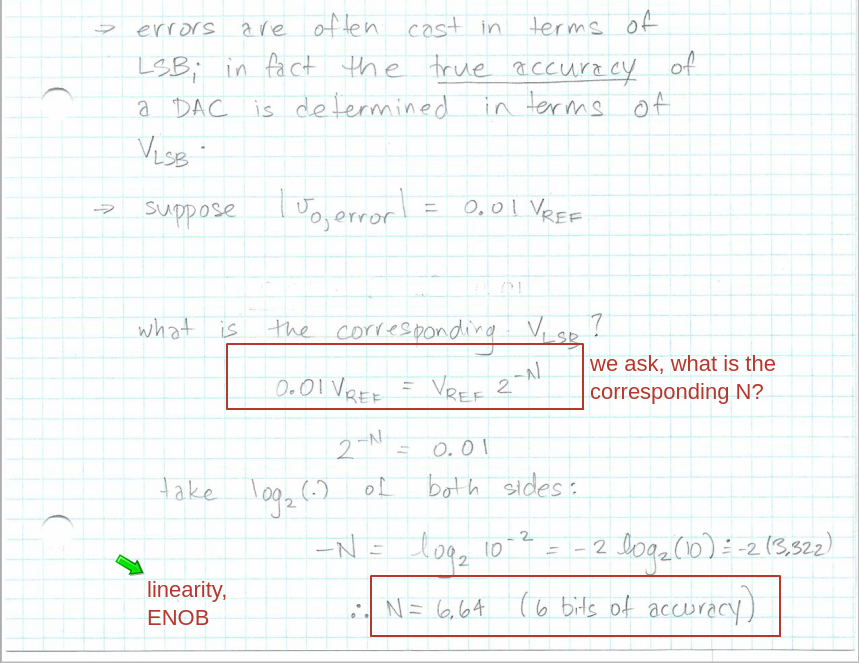 ⇒ errors are often cast in terms of
LSB; in fact the true accuracy of
a DAC is determined in terms of
V_LSB.
⇒ suppose |v_o,error| = 0.01 V_REF
what is the corresponding V_LSB?
0.01 V_REF = V_REF 2^-N
we ask, what is the
corresponding N?
2^-N = 0.01
take log_2(.) of both sides:
-N = log_2 10^-2 = -2 log_2(10) ≐ -2(3.322)
linearity,
ENOB
∴ N = 6.64 (6 bits of accuracy)